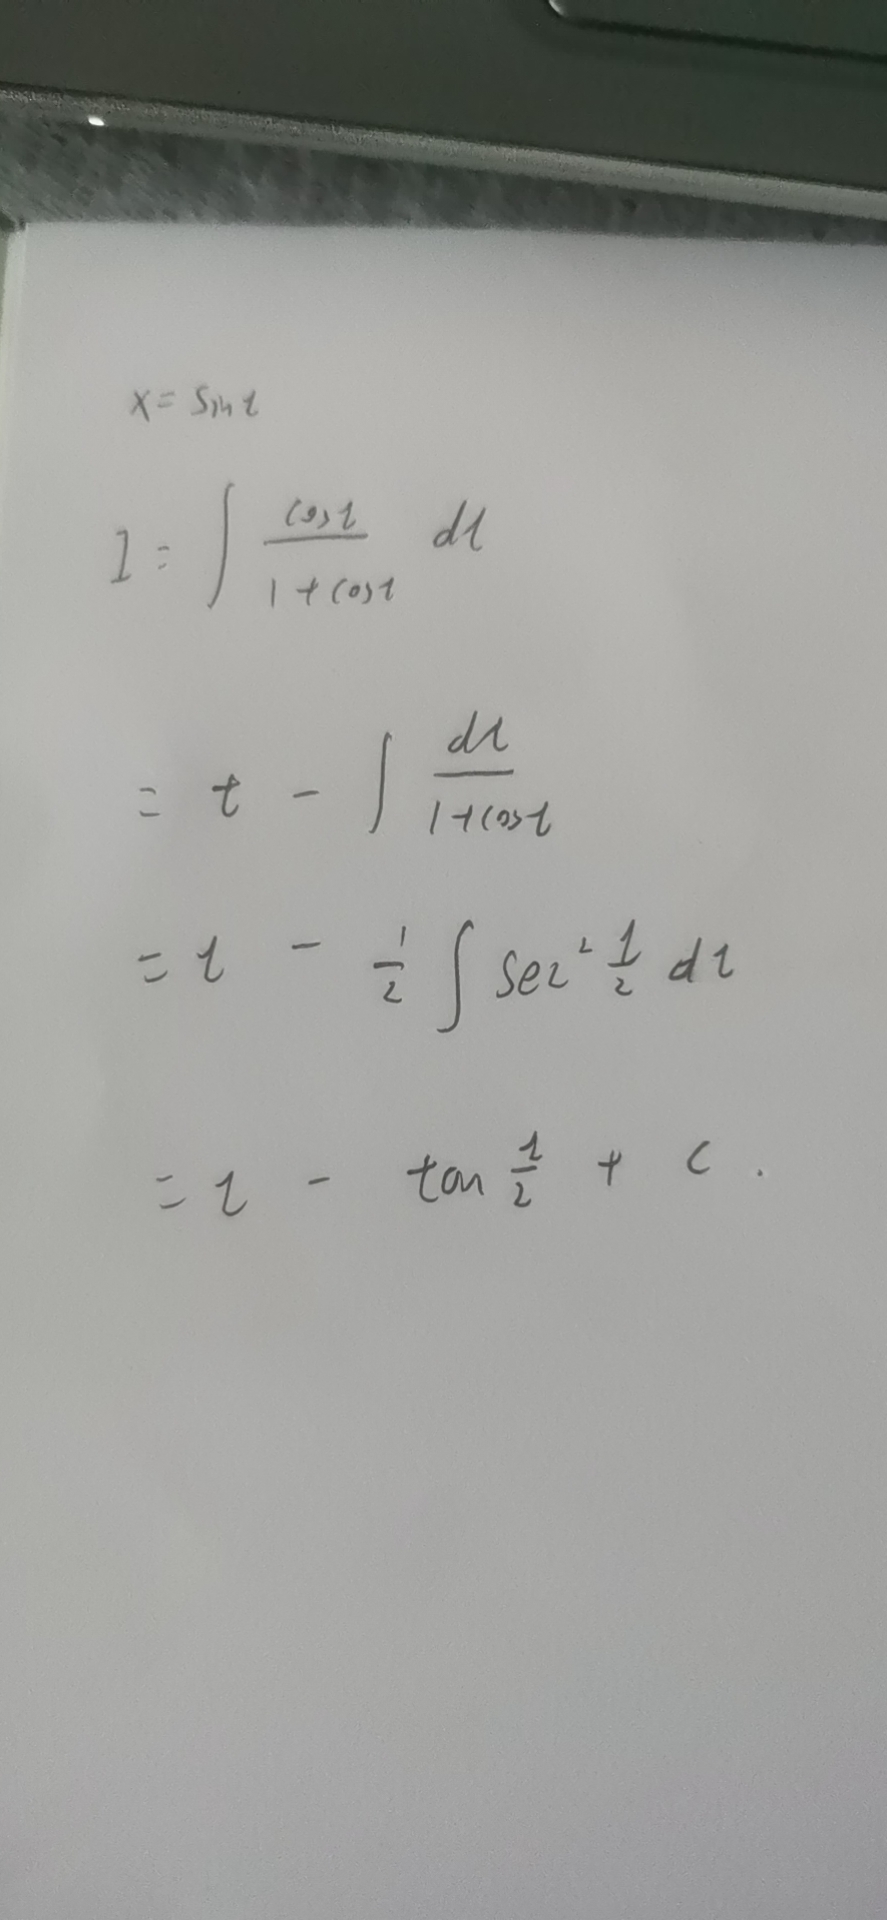 x = sin t
I = ∫ cos t / (1 + cos t) dt
= t - ∫ dt / (1 + cos t)
= t - 1/2 ∫ sec² t/2 dt
= t - tan t/2 + C .